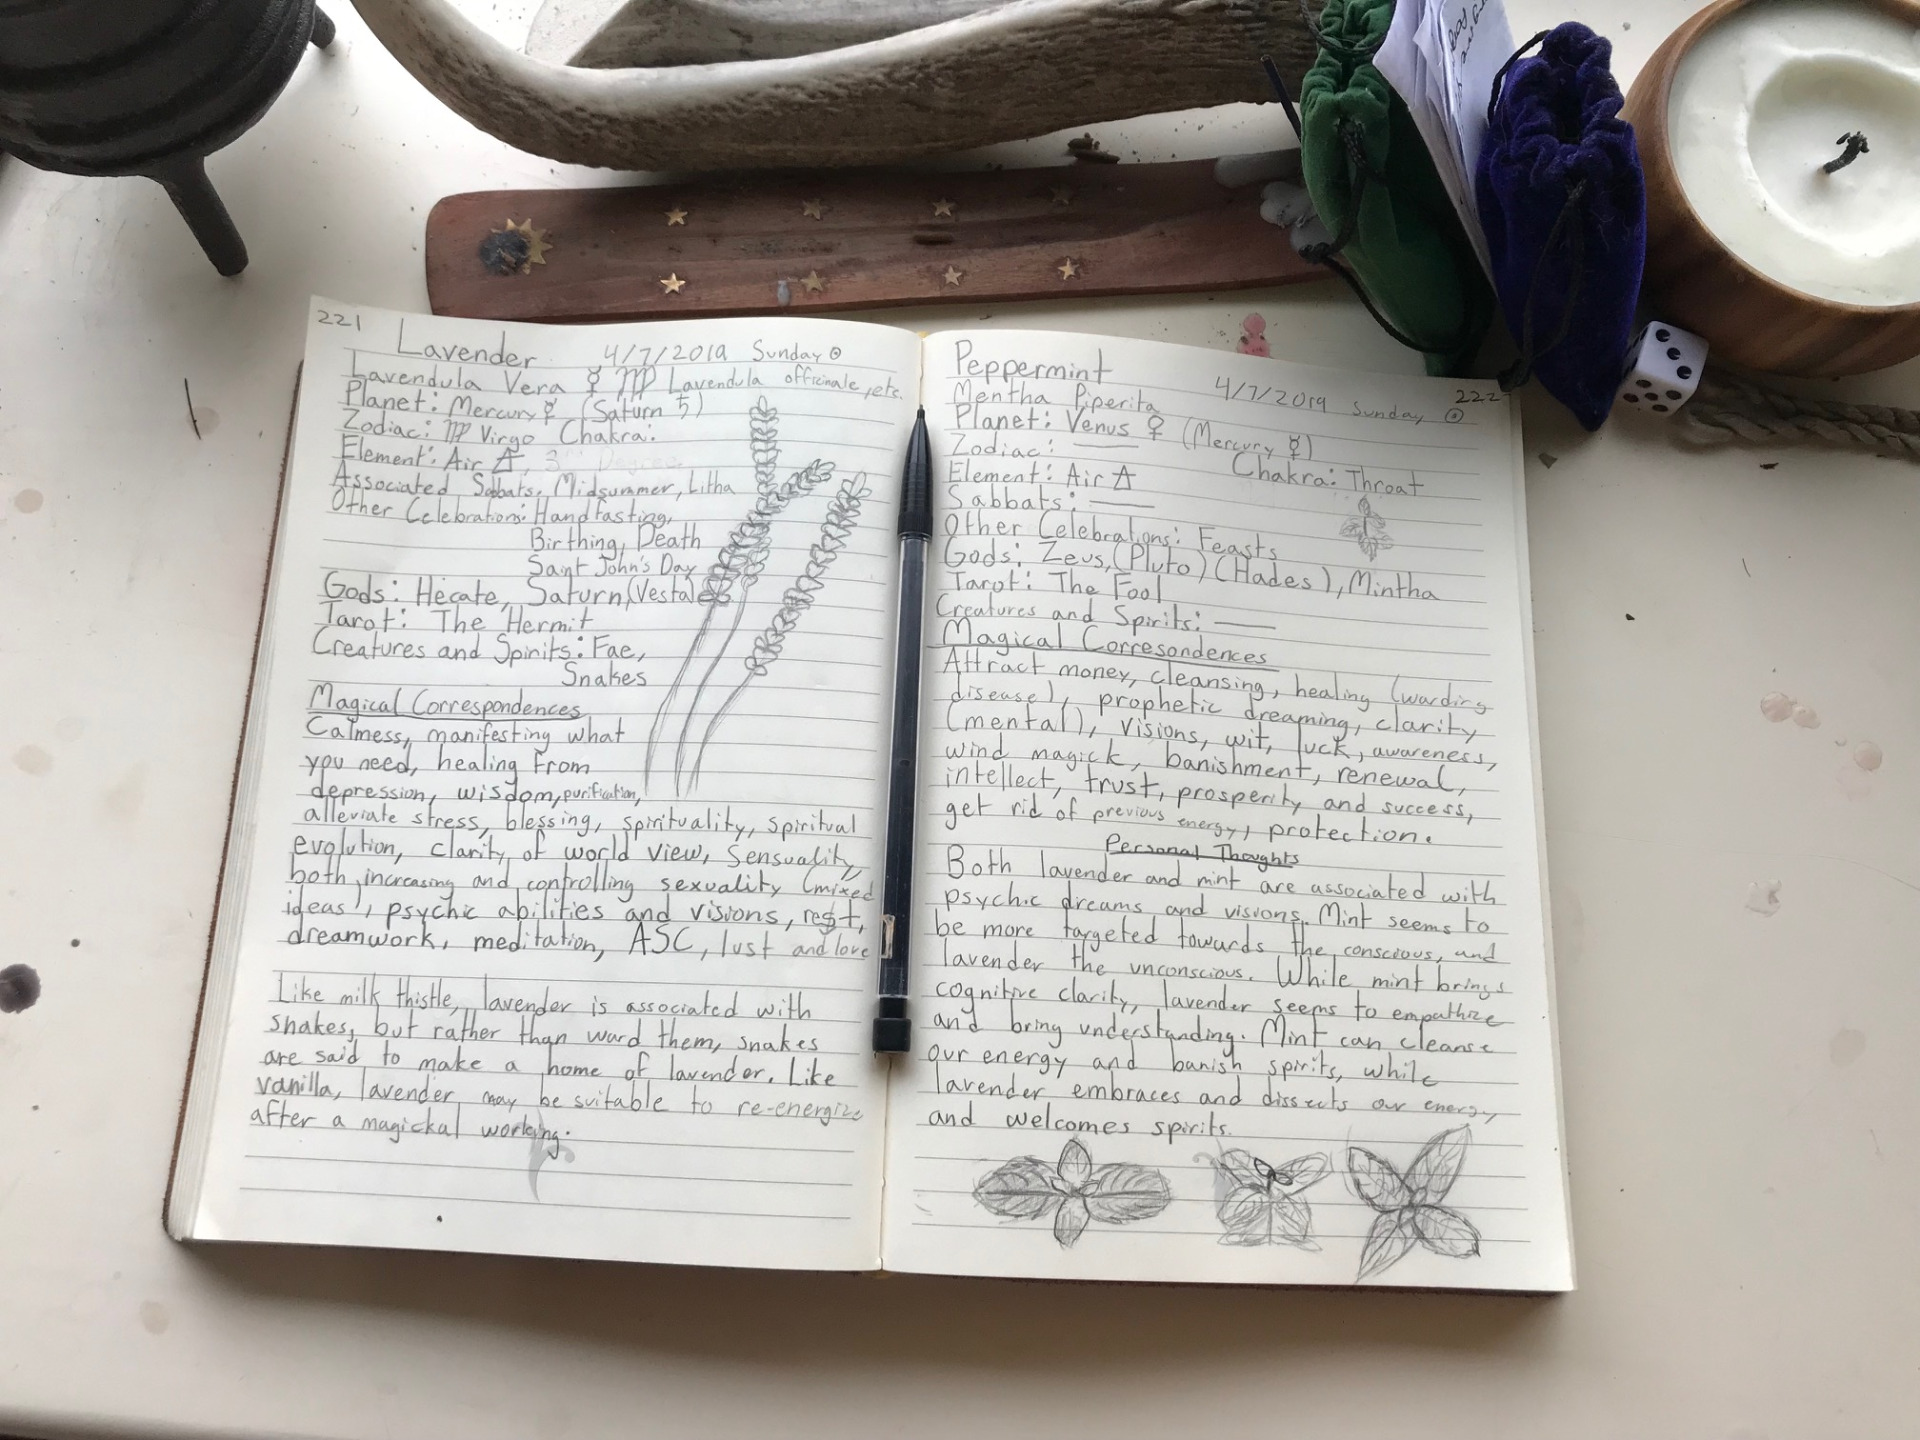 221
Lavender 4/7/2019 Sunday ☉
Lavendula Vera ☿ ♍ Lavendula officinale, etc.
Planet: Mercury ☿ (Saturn ♄)
Zodiac: ♍ Virgo Chakra:
Element: Air 🜁, 3rd Degree
Associated Sabbats: Midsummer, Litha
Other Celebrations: Handfasting,
Birthing, Death
Saint John's Day
Gods: Hecate, Saturn, (Vesta)
Tarot: The Hermit
Creatures and Spirits: Fae,
Snakes
Magical Correspondences
Calmess, manifesting what
you need, healing from
depression, wisdom, purification,
alleviate stress, blessing, spirituality, spiritual
evolution, clarity of world view, sensuality,
both increasing and controlling sexuality (mixed
ideas), psychic abilities and visions, rest,
dreamwork, meditation, ASC, lust and love
Like milk thistle, lavender is associated with
snakes, but rather than ward them, snakes
are said to make a home of lavender. Like
vanilla, lavender may be suitable to re-energize
after a magickal working.
222
Peppermint 4/7/2019 Sunday ☉
Mentha Piperita
Planet: Venus ♀ (Mercury ☿)
Zodiac: —
Chakra: Throat
Element: Air 🜁
Sabbats: —
Other Celebrations: Feasts
Gods: Zeus, (Pluto) (Hades), Mintha
Tarot: The Fool
Creatures and Spirits: —
Magical Corresondences
Attract money, cleansing, healing (warding
disease), prophetic dreaming, clarity
(mental), visions, wit, luck, awareness,
wind magick, banishment, renewal,
intellect, trust, prosperity and success,
get rid of previous energy, protection.
Personal Thoughts
Both lavender and mint are associated with
psychic dreams and visions. Mint seems to
be more targeted towards the conscious, and
lavender the unconscious. While mint brings
cognitive clarity, lavender seems to empathize
and bring understanding. Mint can cleanse
our energy and banish spirits, while
lavender embraces and dissects our energy,
and welcomes spirits.